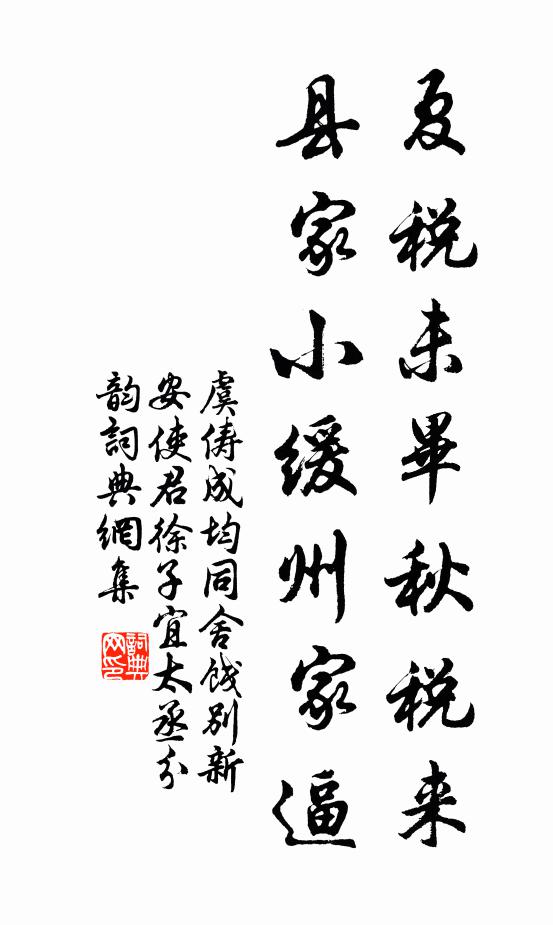 夏税未畢秋税来
县家小缓州家逼
虞俦成均同舍饯别新
安使君徐子宜太丞分
韵詞典網集
詞典网印